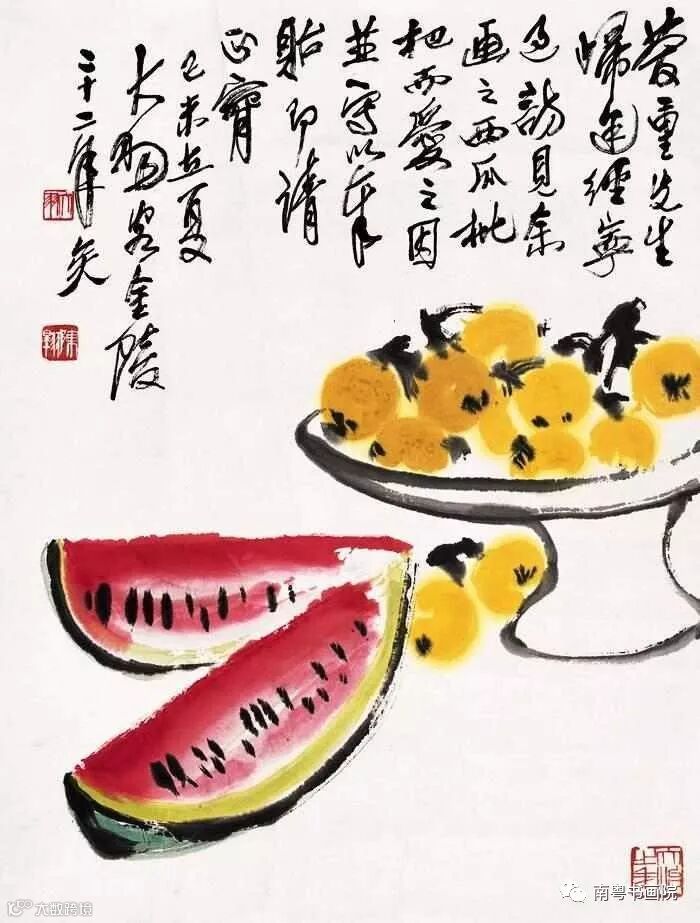 重先生
歸途經寧
過訪見余
画之西瓜枇
杷而愛之因
並寫以奉
貽即請
正
己未立夏
大羽客金陵
二十二年矣
南粤书画院
大数跨境